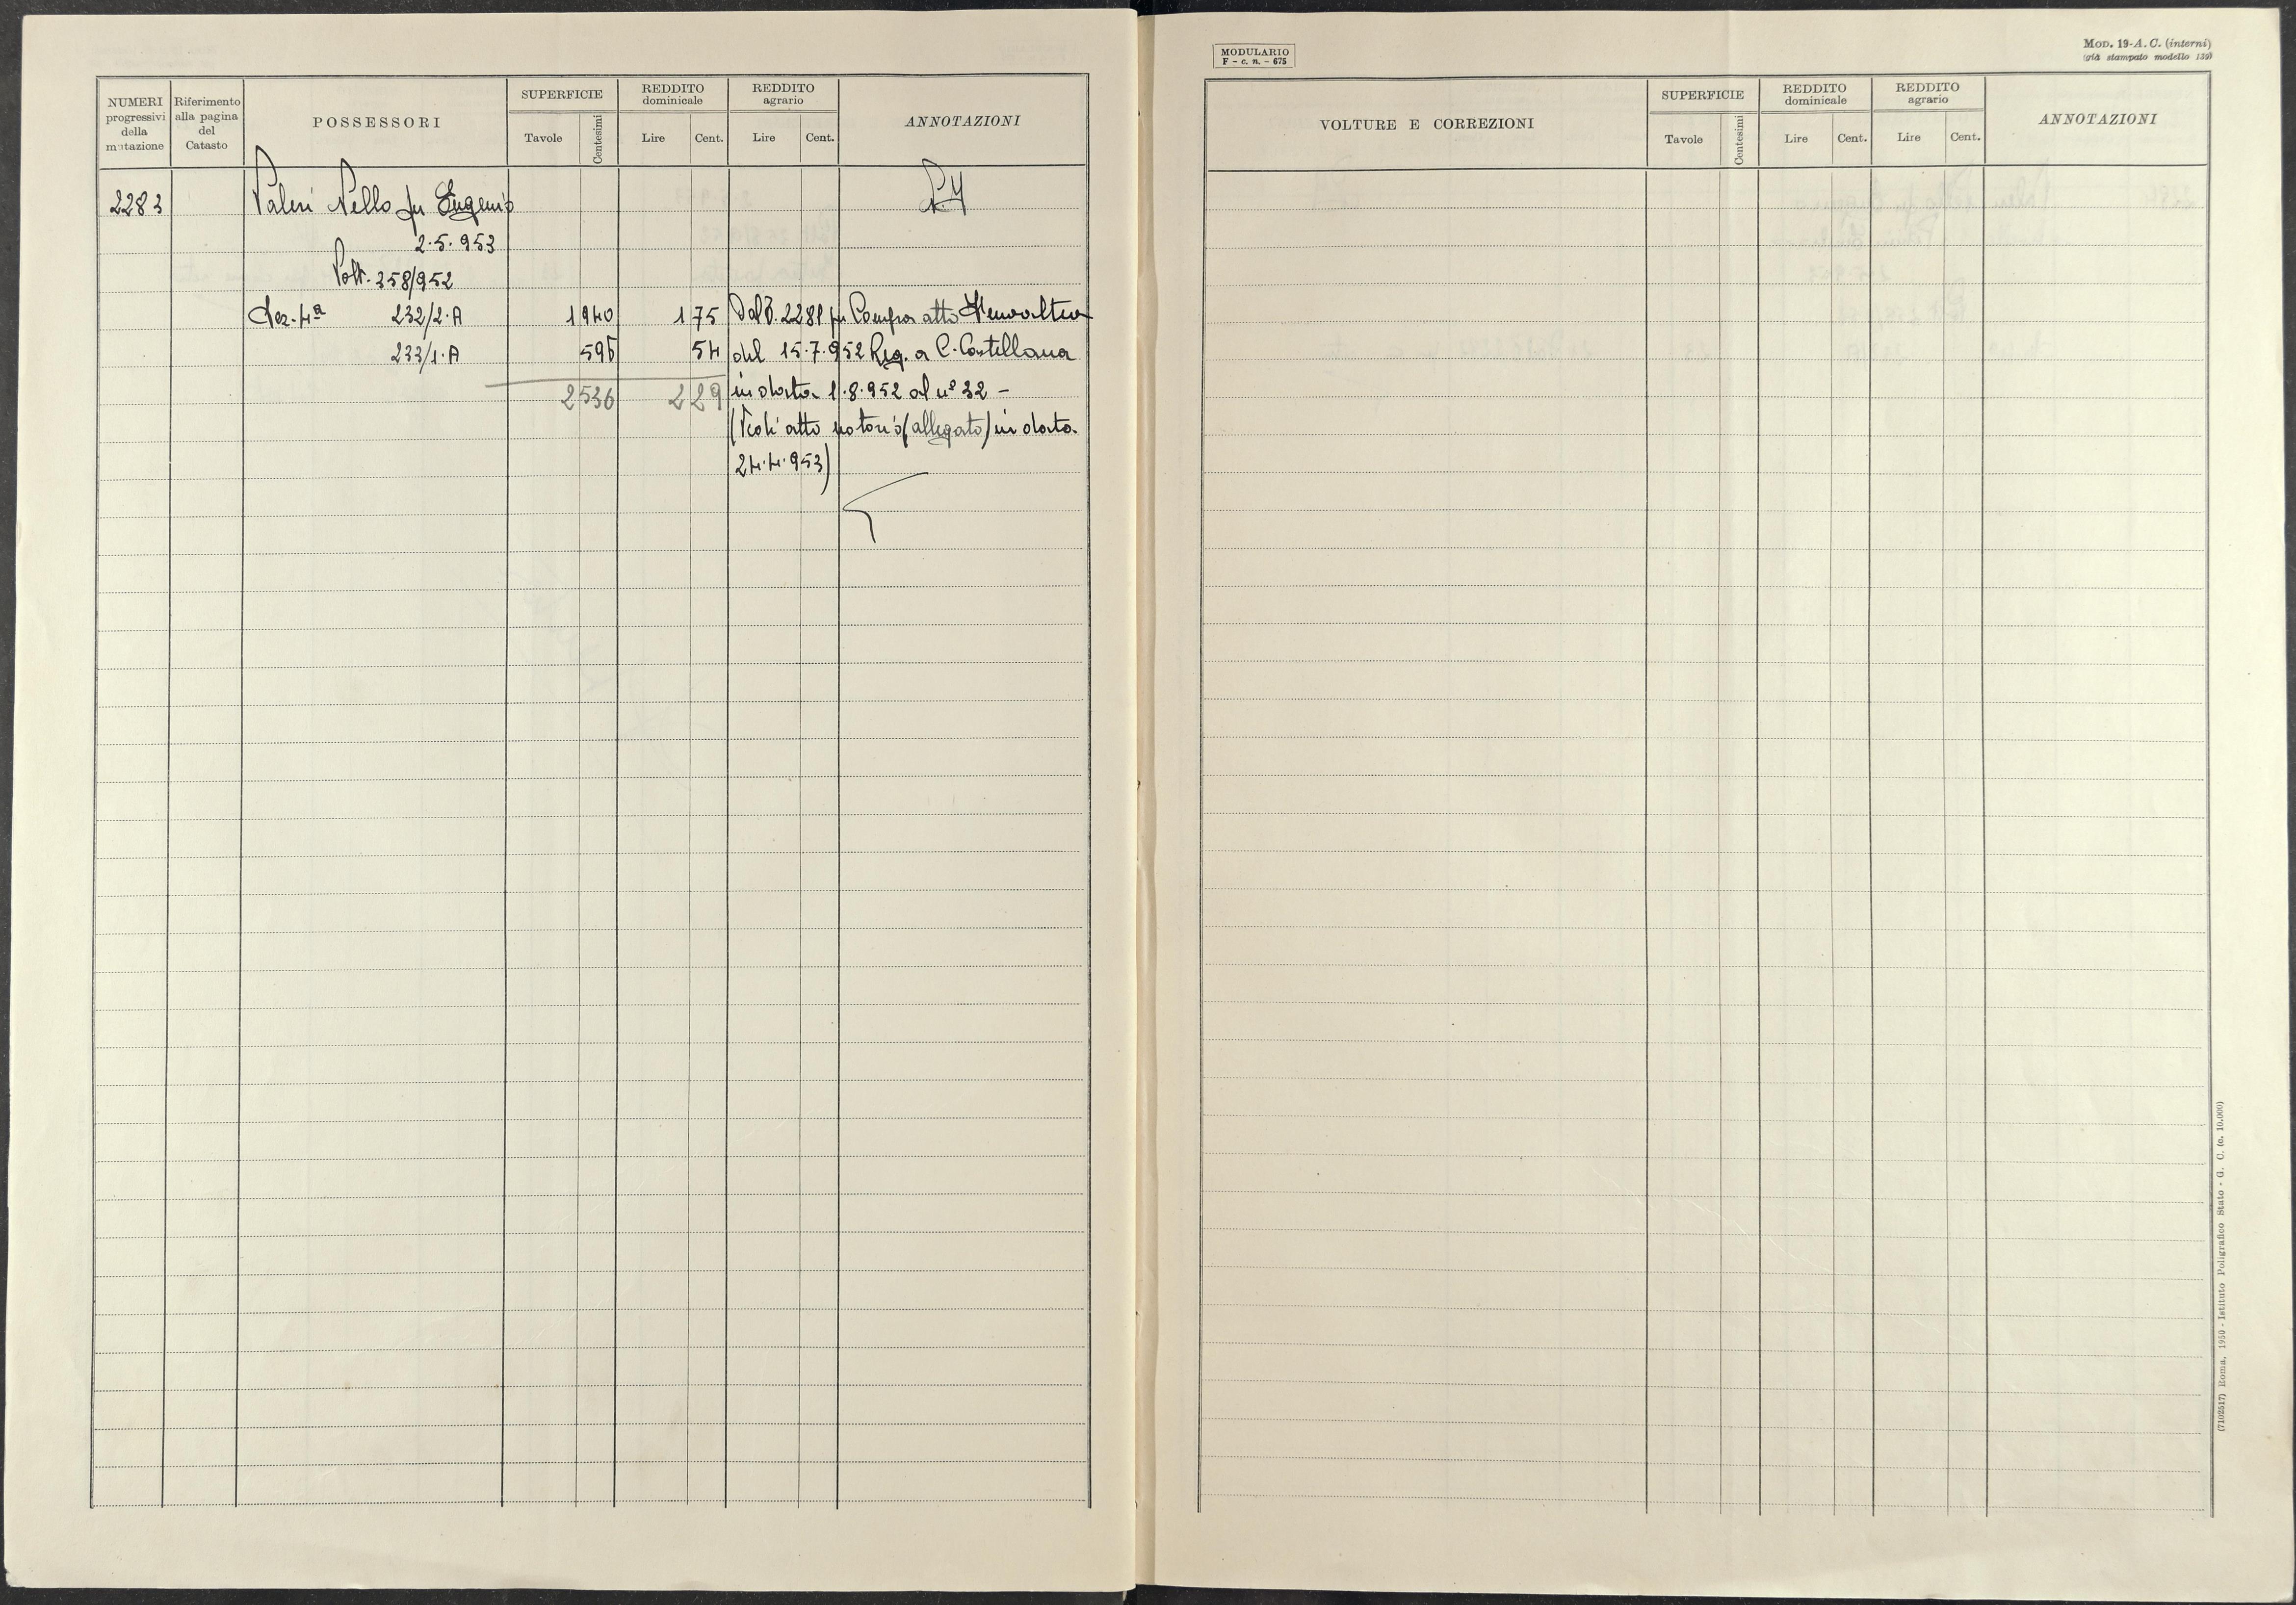 NUMERI progressivi della mutazione
Riferimento alla pagina del Catasto
POSSESSORI
SUPERFICIE
Tavole
Centesimi
REDDITO dominicale
Lire
Cent.
REDDITO agrario
Lire
Cent.
ANNOTAZIONI
2283 Valeri Nello fu Eugenio
2.5.953
Volt. 358/952
Sez. 4ª 232/2.A 1940 175 Dal P. 2281 per Compra atto
233/1.A 596 54 del 15.7.952 Reg. a C. Castellana
2536 229 in data 1.8.952 al n° 32 -
(Vedi atto notorio (allegato) in data
24.4.953)
MODULARIO
F - c. n. - 675
MOD. 19-A. C. (interni)
(già stampato modello 139)
VOLTURE E CORREZIONI
SUPERFICIE
Tavole
Centesimi
REDDITO dominicale
Lire
Cent.
REDDITO agrario
Lire
Cent.
ANNOTAZIONI
(7102517) Roma, 1950 - Istituto Poligrafico Stato - G. C. (c. 10.000)